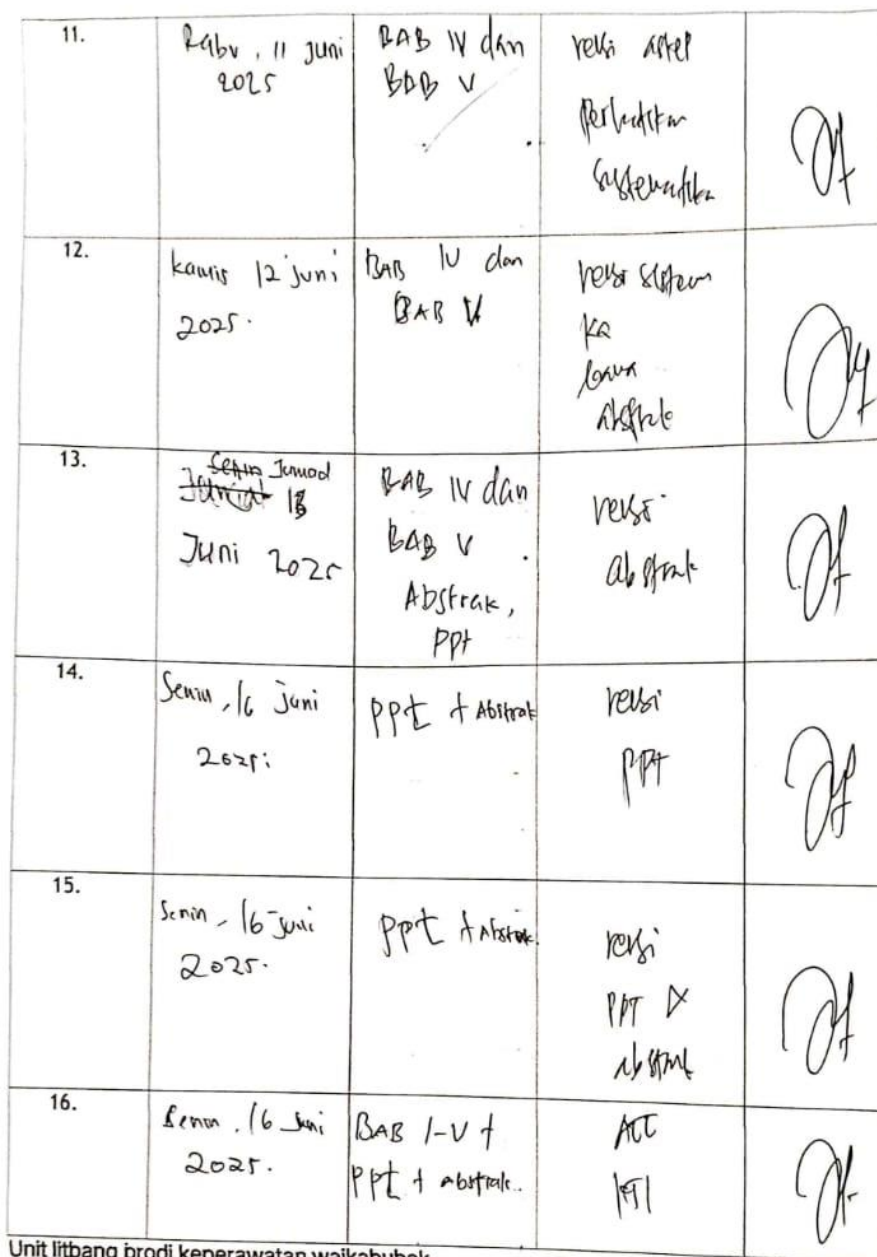 11.
Rabu, 11 Juni
2025
BAB IV dan
BAB V
revisi askep
perhatikan
sistematika
12.
Kamis 12 Juni
2025.
BAB IV dan
BAB V
revisi sistem
abstrak
13.
Senin Jumad
13
Juni 2025
BAB IV dan
BAB V
Abstrak,
PPt
revisi
abstrak
14.
Senin, 16 Juni
2025
PPt + Abstrak
revisi
PPT
15.
Senin, 16 Juni
2025.
PPt + Abstrak.
revisi
PPT
abstrak
16.
Senin, 16 Juni
2025.
BAB I-V +
PPt + abstrak..
ACC
KTI
Unit litbang prodi keperawatan waikabubak